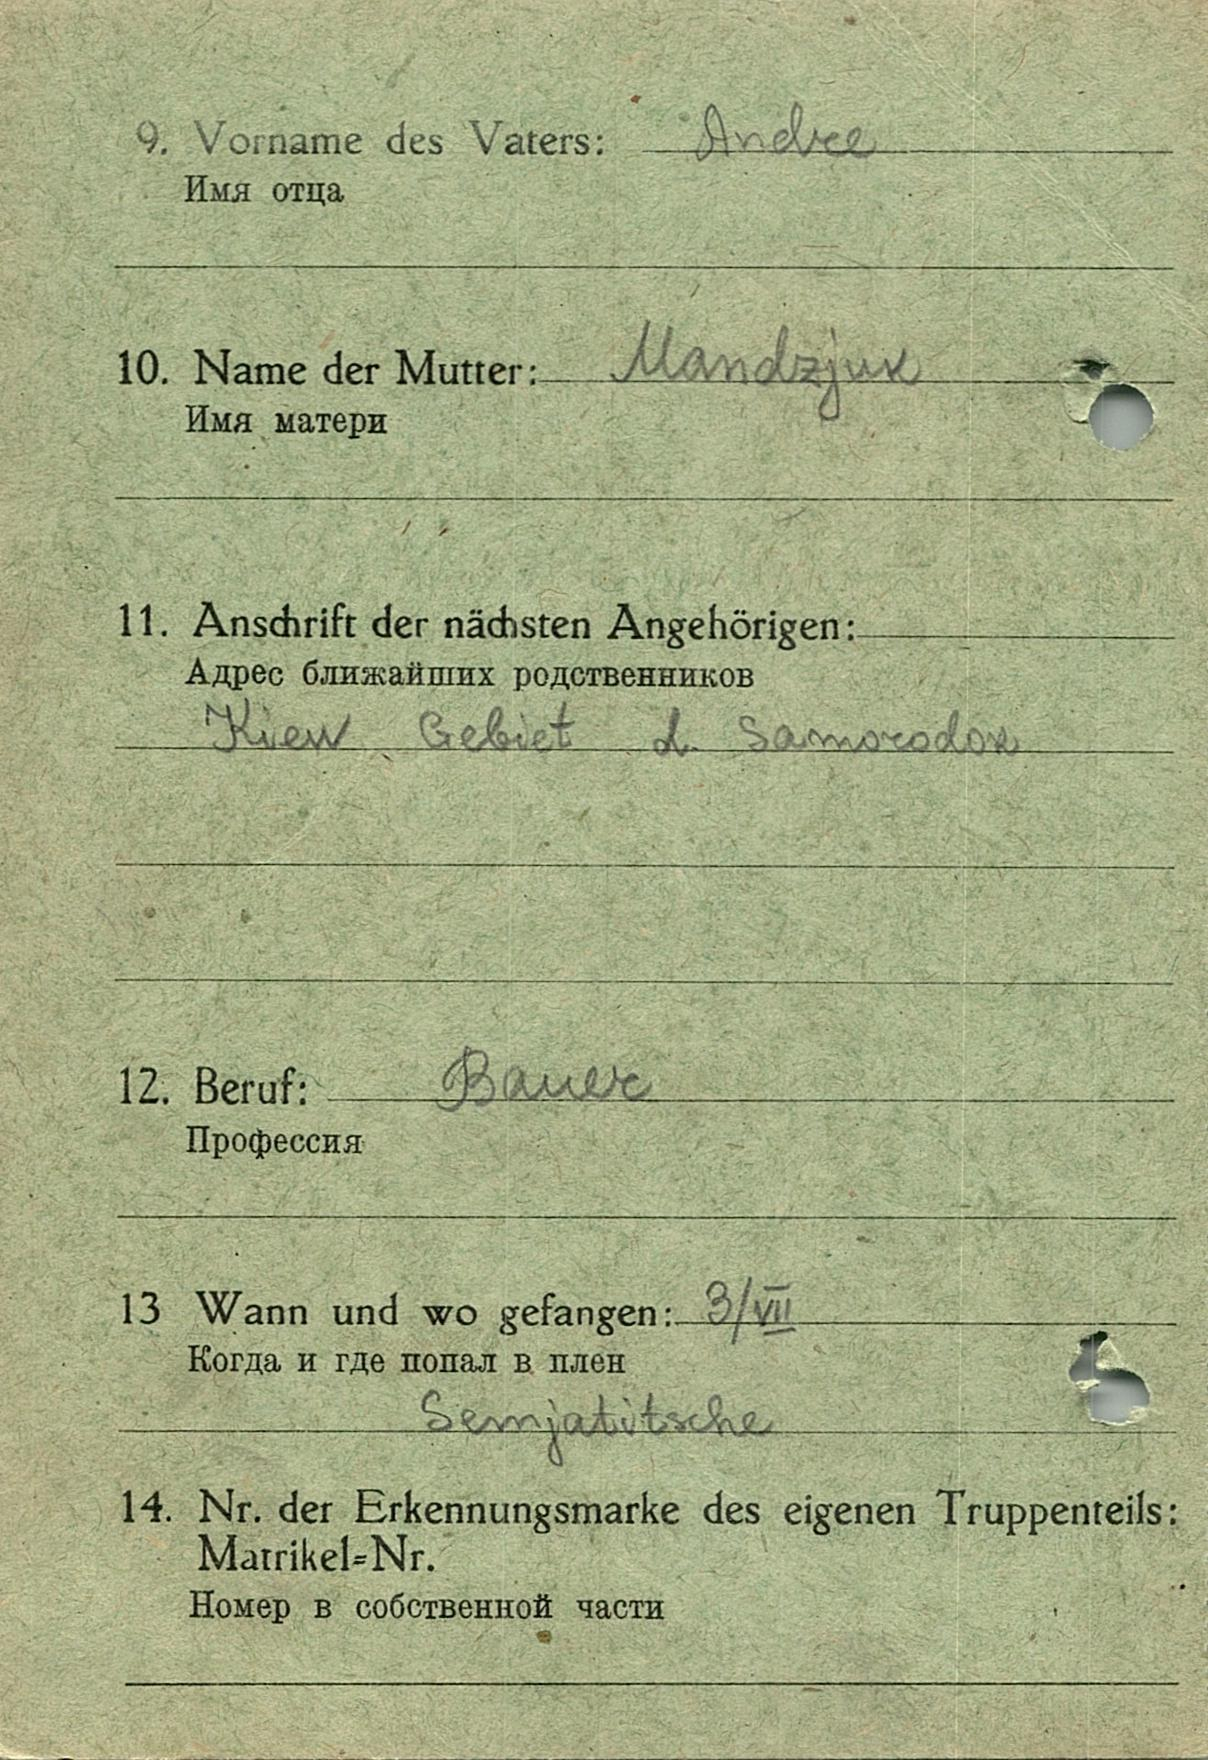 9. Vorname des Vaters: Andree
Имя отца
10. Name der Mutter: Mandzjuk
Имя матери
11. Anschrift der nächsten Angehörigen:
Адрес ближайших родственников
Kiew Gebiet d. Samorodok
12. Beruf: Bauer
Профессия
13 Wann und wo gefangen: 3/VII
Когда и где попал в плен
Semjatitsche
14. Nr. der Erkennungsmarke des eigenen Truppenteils:
Matrikel=Nr.
Номер в собственной части